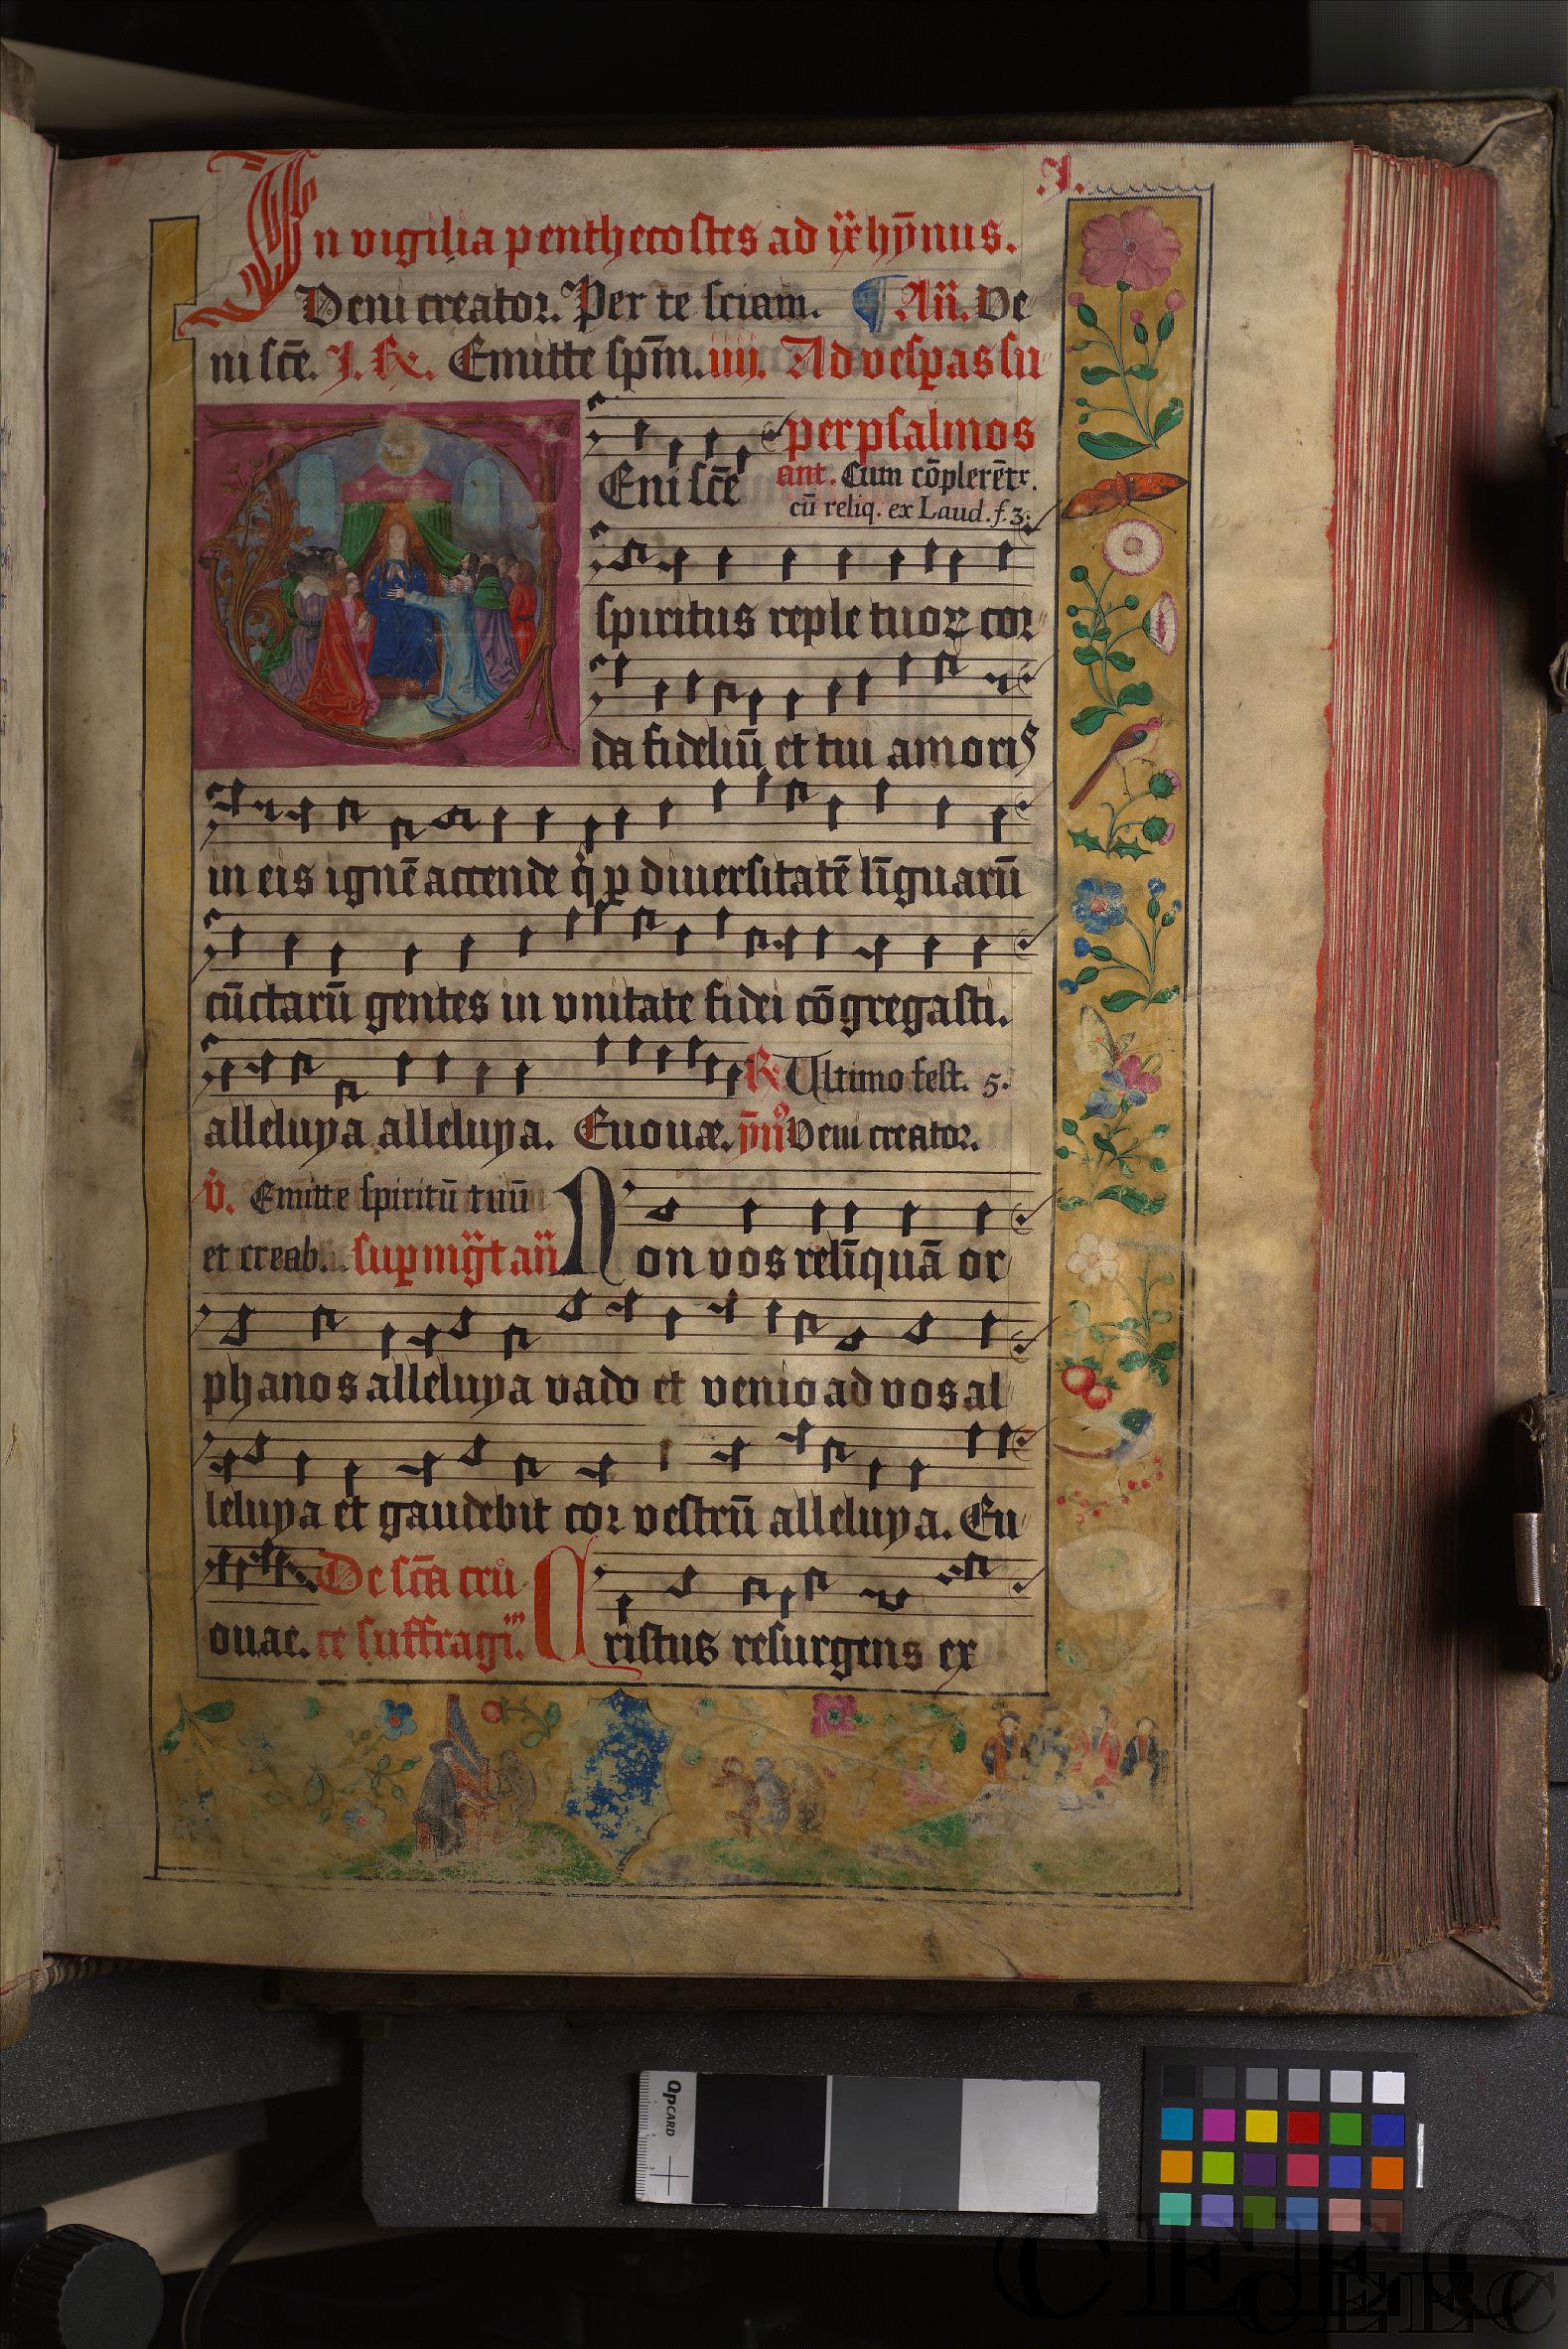 J.
In vigilia penthecostes ad ix̄ hȳnus.
Veni creator. Per te sciam. ¶ Añ. Ve
ni sc̄e. J. ℟. Emitte sp̄m. iiii. Ad vesꝑas su
per psalmos
Eni sc̄e ant. Cum cōplerēt͛.
cū reliq. ex Laud. f. 3.
spiritus reple tuoꝝ cor
da fideliū et tui amoris
in eis ignē accende q̇ ꝑ diuersitatē līguarū
cūctarū gentes in vnitate fidei cōgregasti.
℟ Ultimo fest. 5.
alleluya alleluya. Euouæ. ȳmꝰ Veni creator.
v̄. Emitte spiritū tuū
et creab. suꝑ mg̈t añ Non vos relīquā or
phanos alleluya vado et venio ad vos al
leluya et gaudebit cor vestrū alleluya. Eu
De sc̄a cru
ouae. ce suffragiᵐ. Cristus resurgens ex
QPCARD
CEEC
CEEC